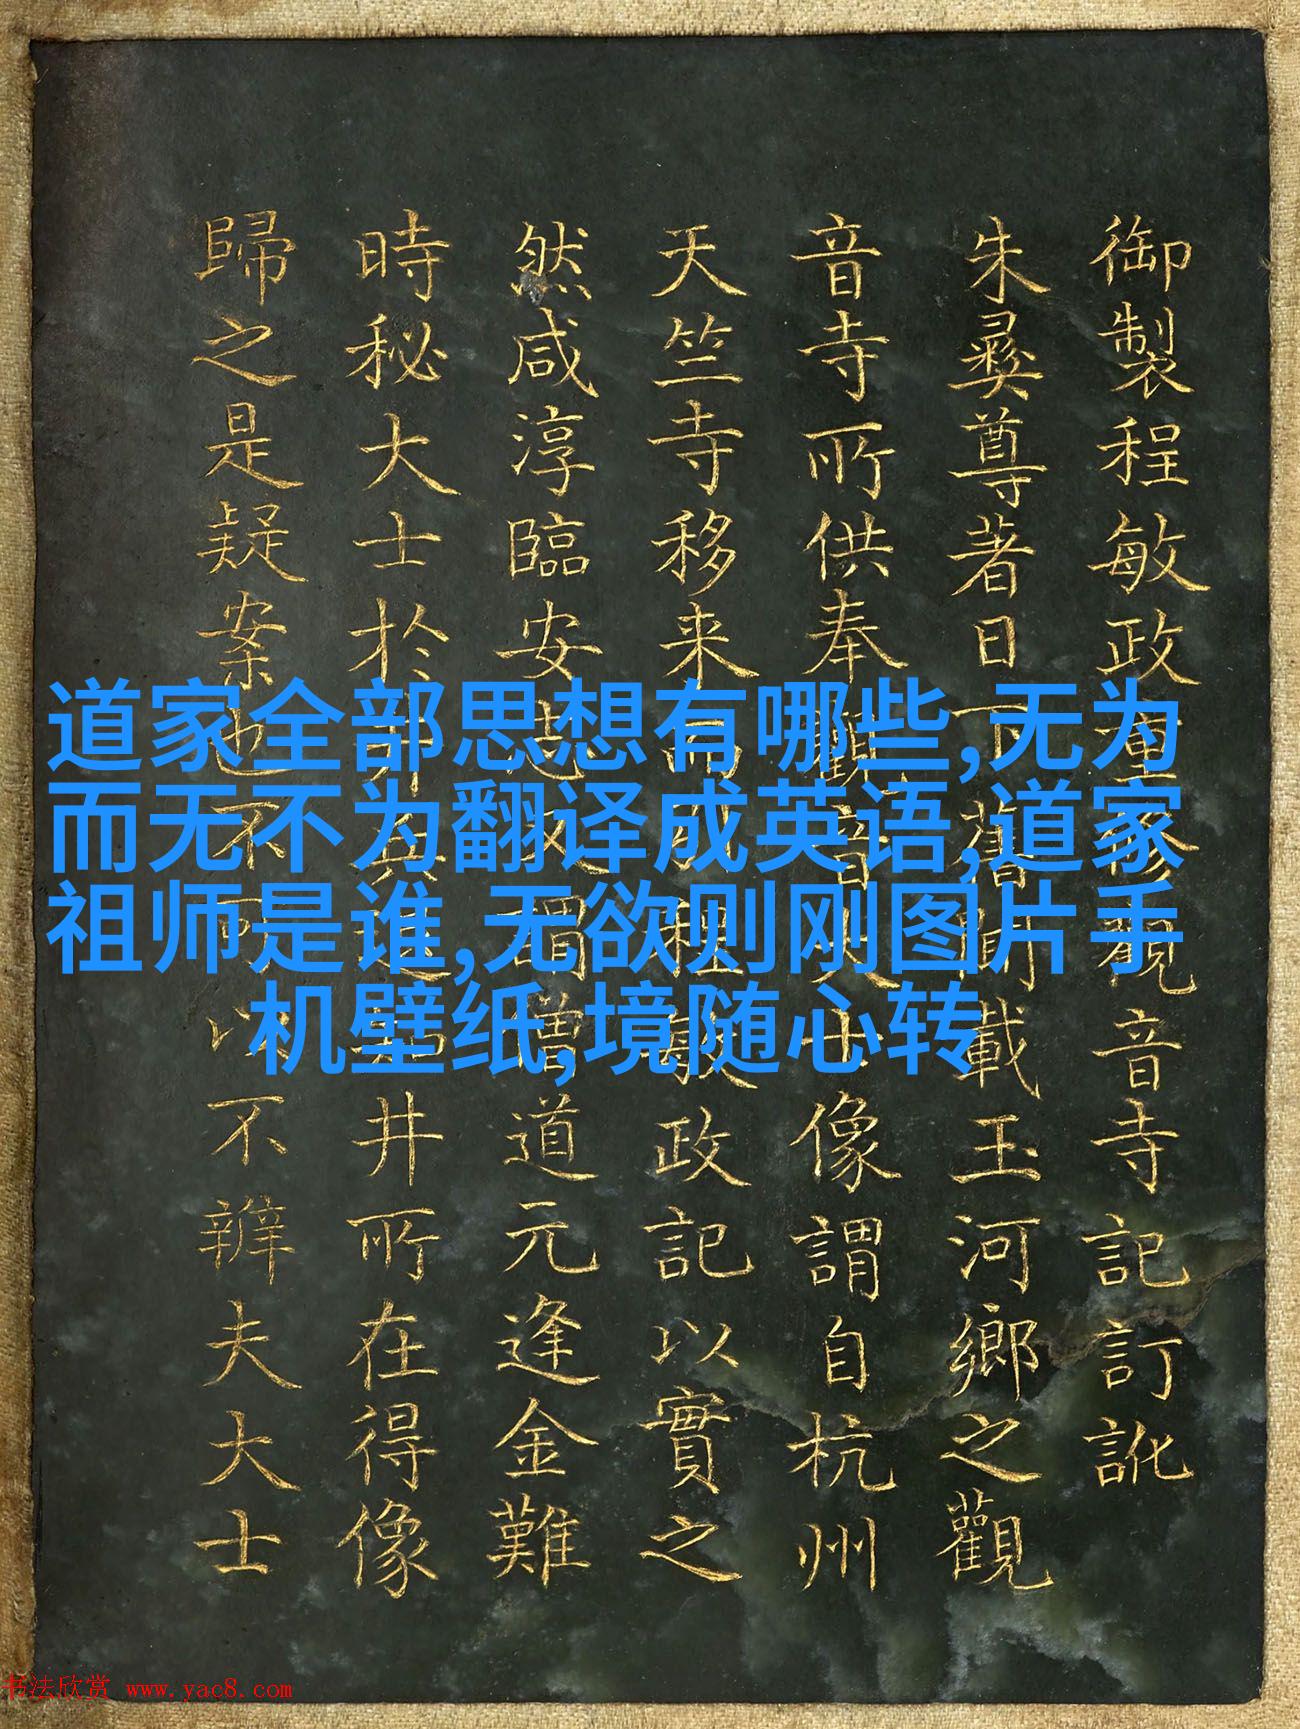 御製程敏政重修觀音寺記訂訛
朱彞尊著日下舊聞載玉河鄉之觀
音寺所供奉觀音大士像謂自杭州
天竺寺移来而程敏政記以實之
然咸淳臨安志又謂僧道元逢金難
時秘大士於井其井所在得像
歸之是疑案也不可以不辨夫大士
道家全部思想有哪些,无为
而无不为翻译成英语,道家
祖师是谁,无欲则刚图片手
机壁纸,境随心转
书法欣赏 www.yac8.com